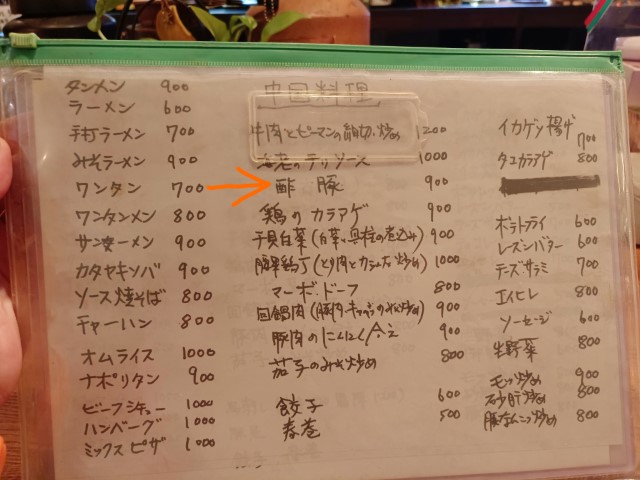 タンメン 900
ラーメン 600
手打ラーメン 700
みそラーメン 900
ワンタン 700
ワンタンメン 800
サンマーメン 900
カタヤキソバ 900
ソース焼そば 800
チャーハン 800
オムライス 1000
ナポリタン 900
ビーフシチュー 1000
ハンバーグ 1000
ミックスピザ 1000
中国料理
牛肉とピーマンの細切り炒め 1200
海老のチリソース 1000
酢豚 900
鶏のカラアゲ 900
干貝白菜(白菜と貝柱の煮込み) 900
腰果鶏丁(とり肉とカシューナッツ炒め) 1000
マーボードーフ 800
回鍋肉(豚肉・キャベツのみそ炒め) 900
豚肉のにんにく合え 900
茄子のみそ炒め 800
餃子 600
春巻 500
イカゲソ揚げ 700
タコカラアゲ 800
ポテトフライ 600
レーズンバター 600
チーズサラミ 700
エイヒレ 800
ソーセージ 600
生野菜 800
モツ炒め 900
砂肝炒め 800
豚なんこつ炒め 800